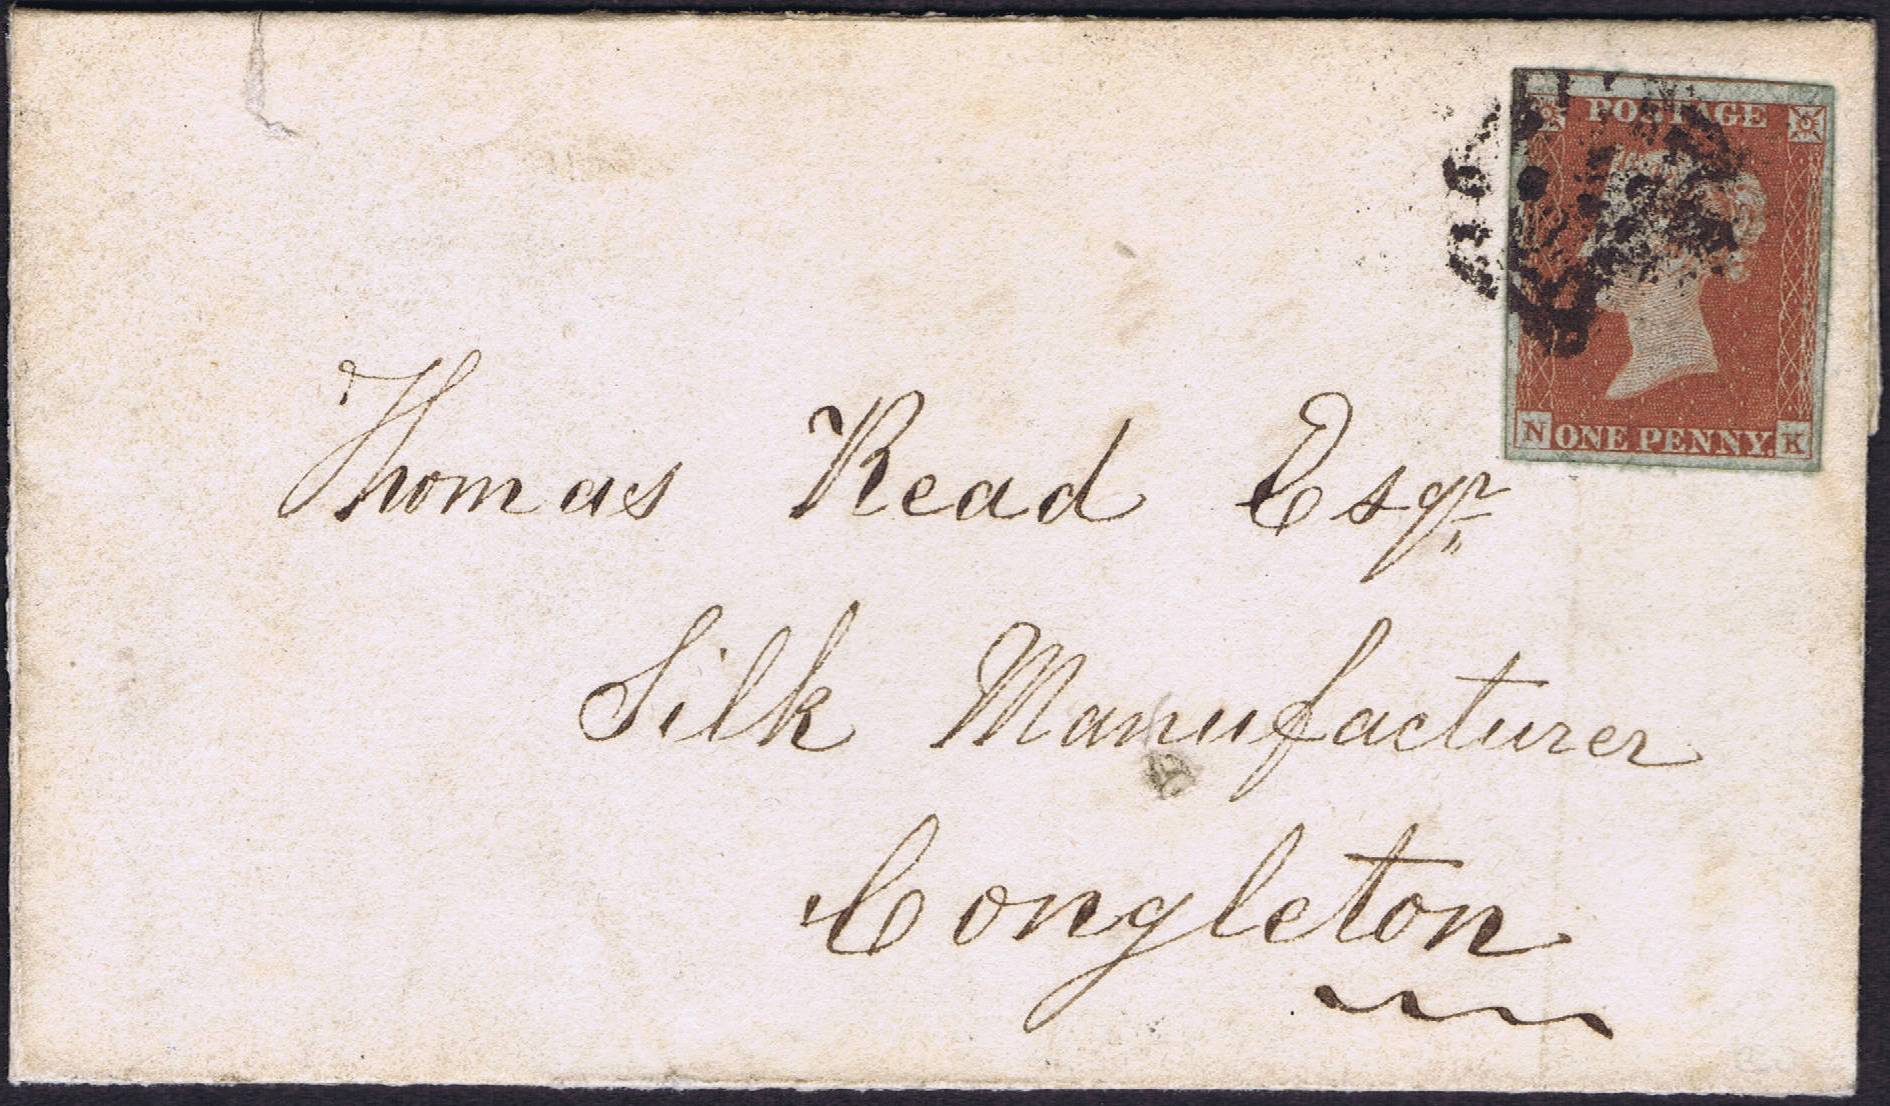 POSTAGE
N ONE PENNY. K
Thomas Read Esqr
Silk Manufacturer
Congleton